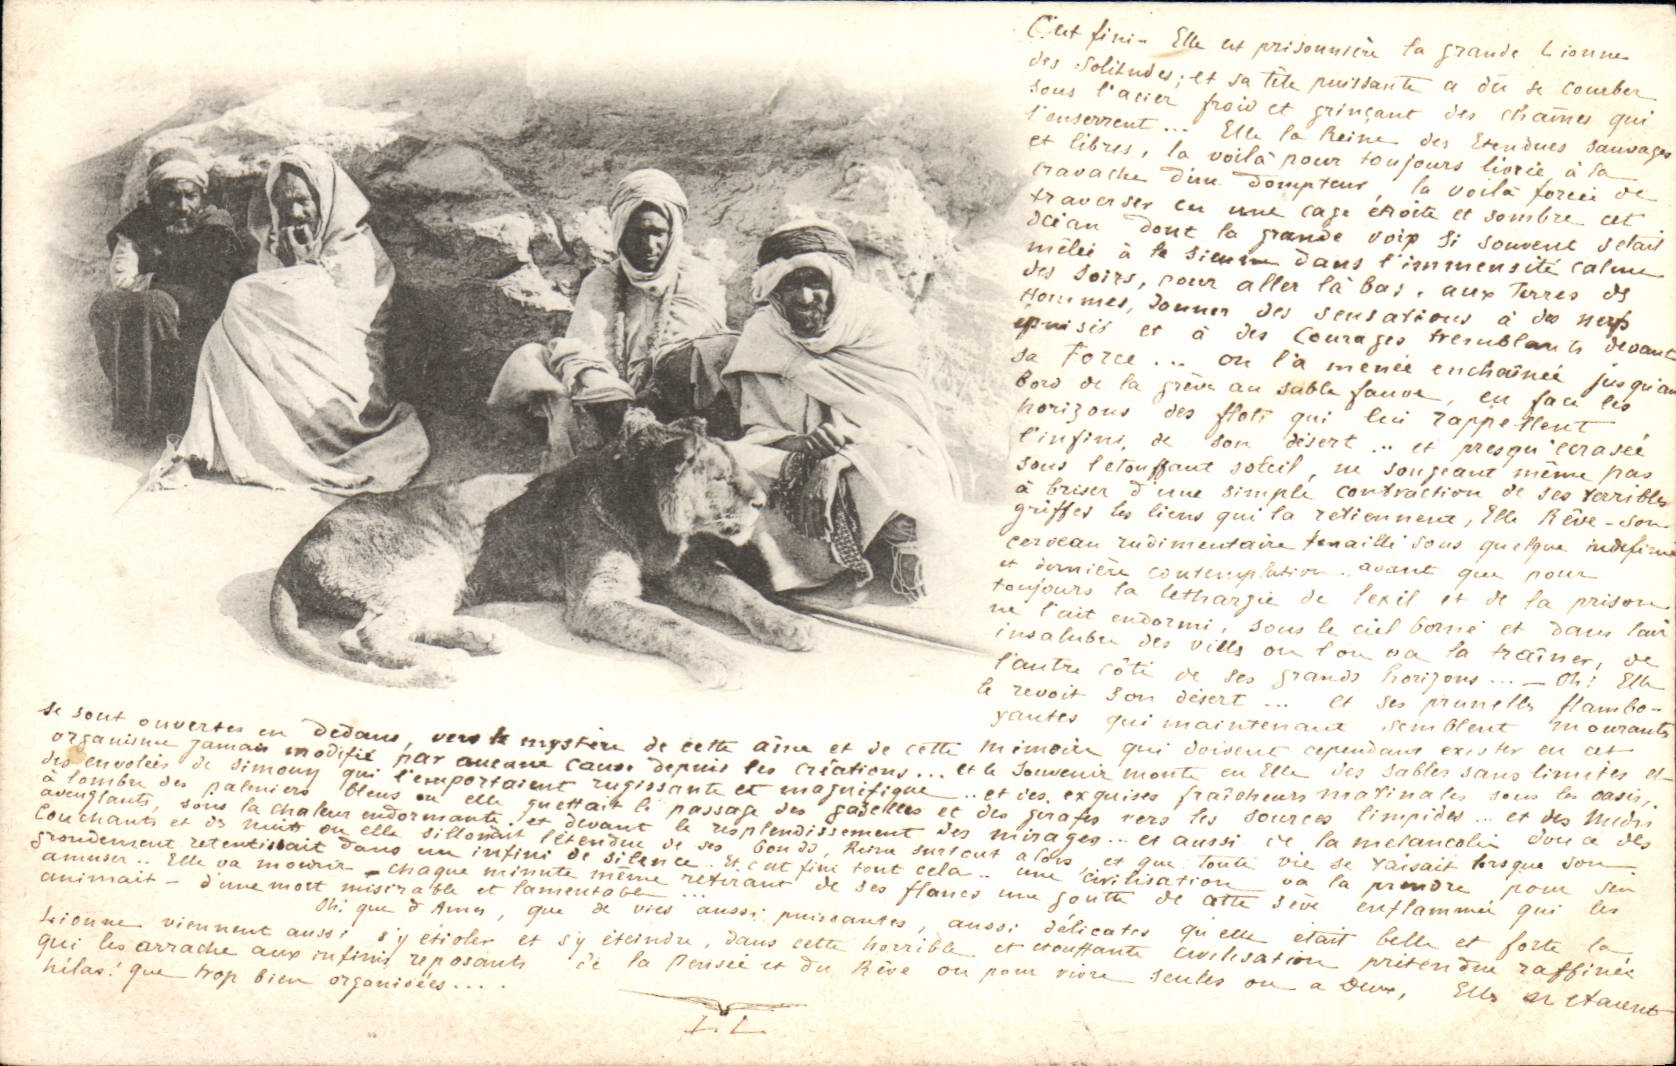 C'est fini - Elle est prisonnière la grande Lionne
des Solitudes; et sa tête puissante a dû se courber
sous l'acier froid et grinçant des chaînes qui
l'enserrent... Elle la Reine des Etendues sauvages
et libres, la voilà pour toujours livrée, à la
cravache d'un dompteur, la voilà forcée de
traverser en une cage étroite et sombre cet
Océan dont la grande voix si souvent s'était
mêlée à la sienne dans l'immensité calme
des soirs, pour aller là bas, aux Terres des
Hommes, donner des sensations à des nerfs
épuisés et à des Courages tremblants devant
sa Force... on l'a menée enchaînée jusqu'au
bord de la grève au sable fauve, en face les
horizons des flots qui lui rappellent
l'infini, de son désert... et presqu'écrasée
sous l'étouffant soleil, ne songeant même pas
à briser d'une simple contraction de ses terribles
griffes les liens qui la retiennent, Elle Rêve - son
cerveau rudimentaire tenaillé sous quelque indéfinie
et dernière contemplation.. avant que pour
toujours la léthargie de l'exil et de la prison
ne l'ait endormi, sous le ciel borné et dans l'air
insalubre des villes où l'on va la traîner, de
l'autre côté de ses grands horizons... - Oh! Elle
le revoit son désert... et ses prunelles flambo-
yantes qui maintenant semblent mourantes
se sont ouvertes en dedans, vers le mystère de cette âme et de cette mémoire qui doivent cependant exister en cet
organisme jamais modifié par aucune cause depuis les créations... et le Souvenir monte en Elle des sables sans limites et
des envolées de simoun qui l'emportaient rugissante et magnifique.. et des exquises fraîcheurs matinales sous les oasis,
à l'ombre des palmiers bleus où elle guettait le passage des gazelles et des girafes vers les sources limpides... et des Midis
aveuglants, sous la chaleur endormante, et devant le resplendissement des mirages... et aussi de la mélancolie douce des
Couchants et des nuits où elle sillonnait l'étendue de ses bonds, Reine surtout alors, et que toute vie se taisait lorsque son
grondement retentissait dans un infini de silence.. Et c'est fini tout cela.. une civilisation va la prendre pour s'en
amuser.. Elle va mourir - chaque minute même retirant de ses flancs une goutte de cette sève enflammée qui les
animait - d'une mort misérable et lamentable...
Oh! que d'Ames, que de vies aussi puissantes, aussi délicates qu'elle était belle et forte la
Lionne viennent aussi s'y étioler et s'y éteindre, dans cette horrible et étouffante civilisation prétendue raffinée
qui les arrache aux infinis reposants de la Pensée et du Rêve où pour vivre seules ou à Deux, Elles étaient
hélas! que trop bien organisées....
L. L.